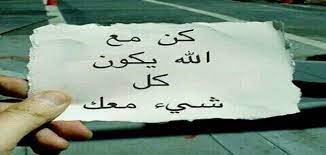 كن مع
الله يكون
كل
شيء معك